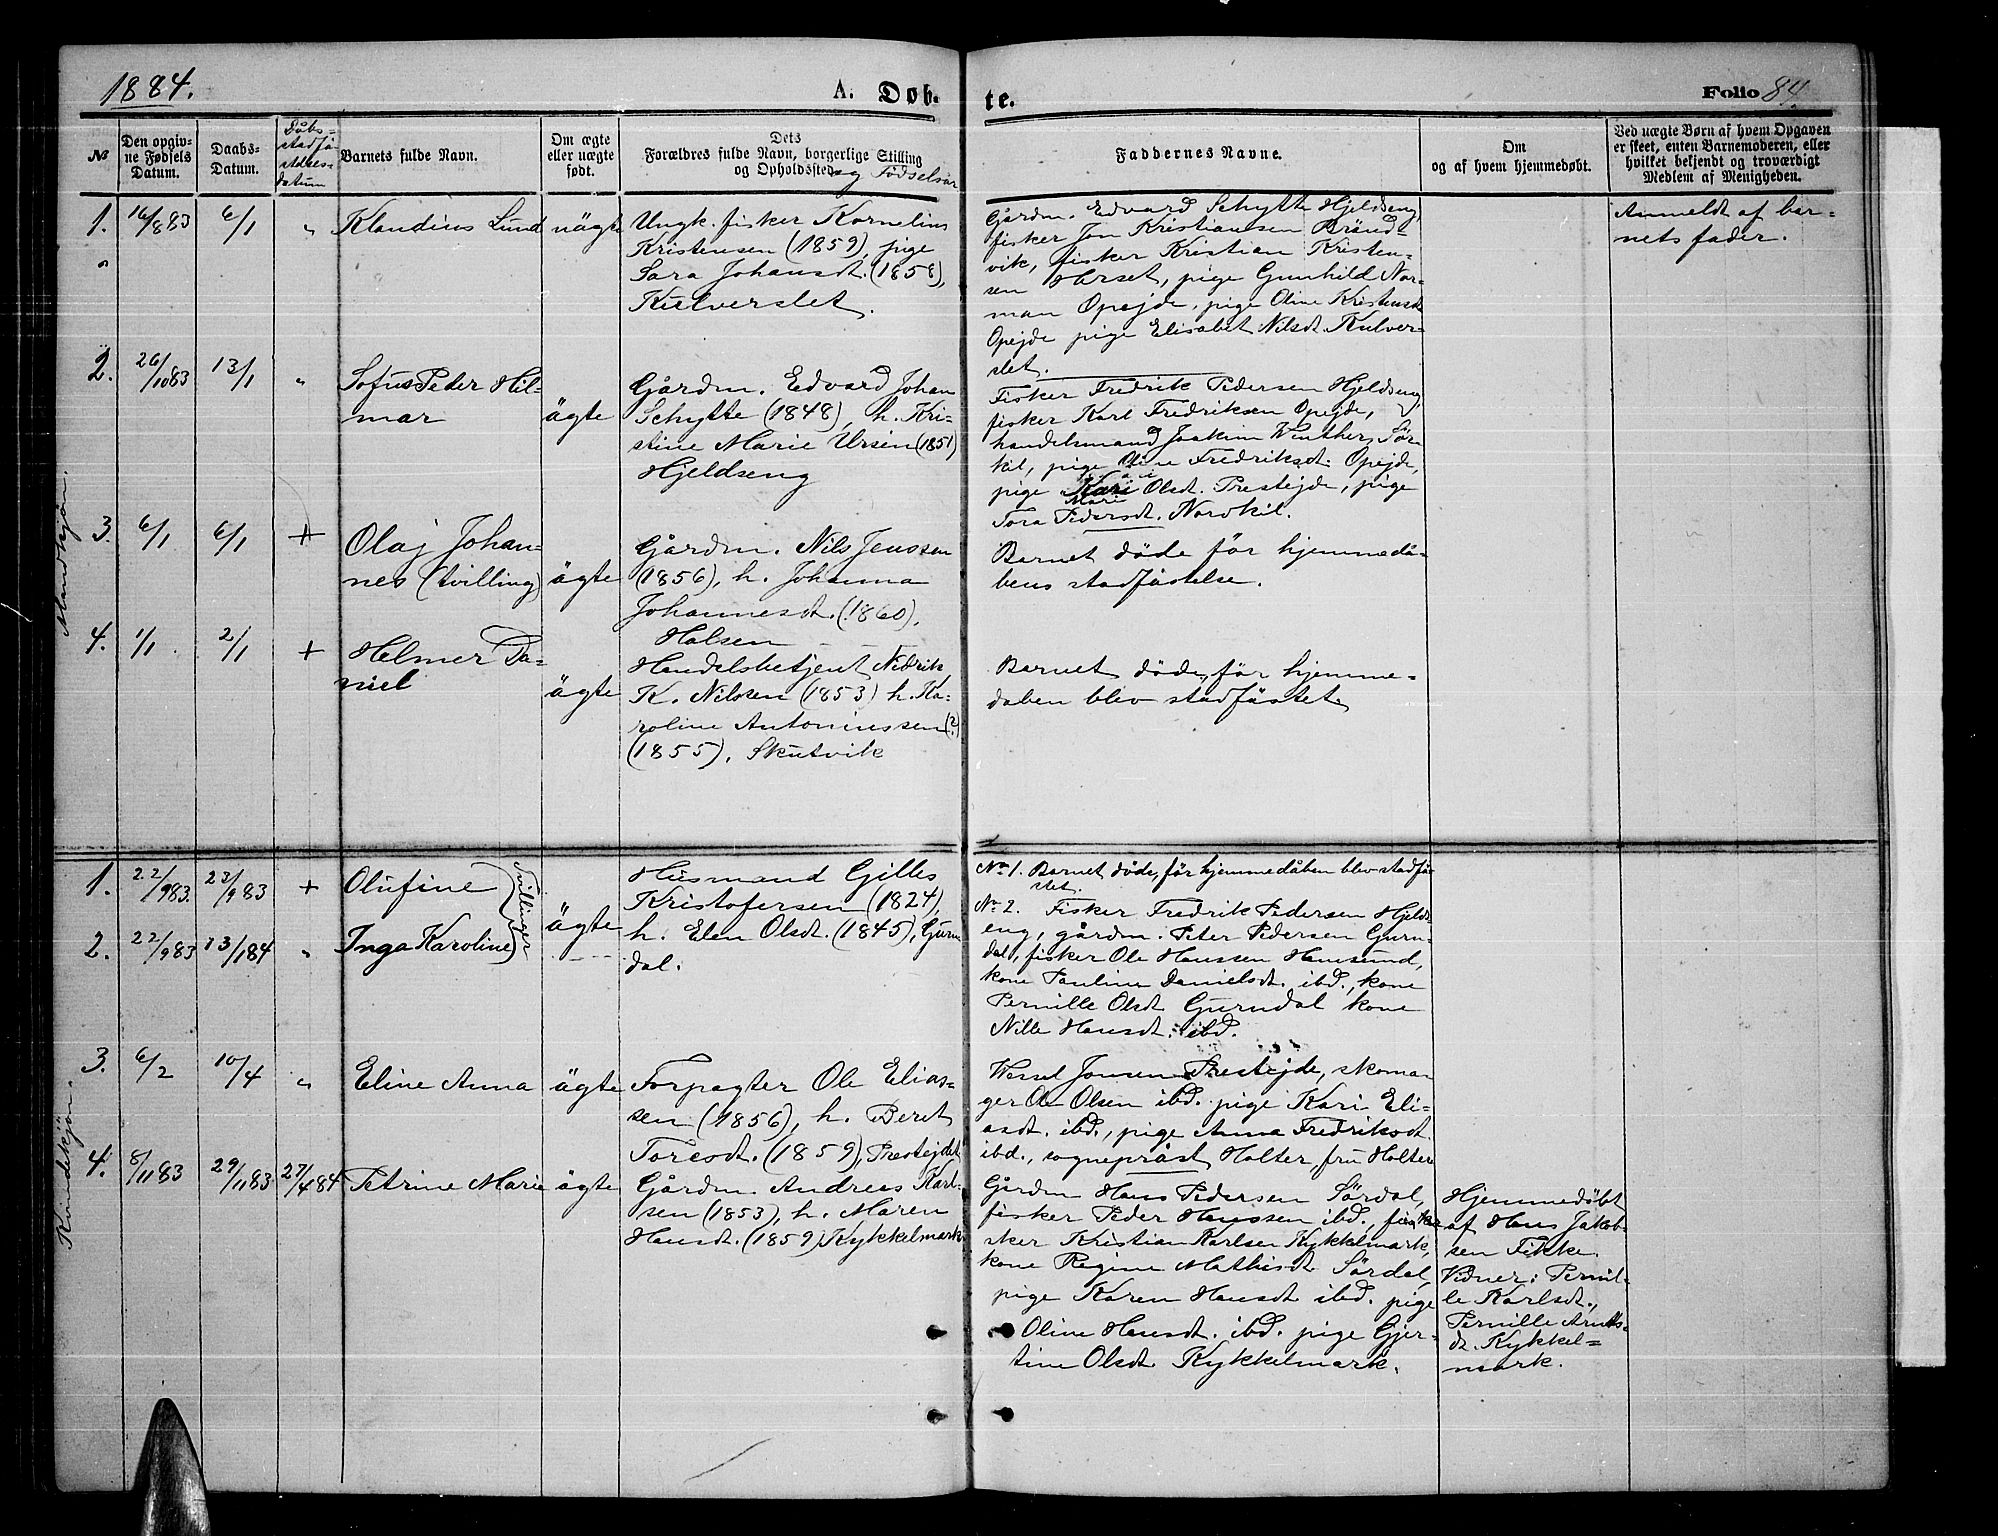 1884.
A. Døb-
te.
Folio 84
№
Den opgiv-
ne Fødsels
Datum.
Daabs-
Datum.
Dåbs-
stadfä-
stelses-
datum
Barnets fulde Navn.
Om ægte
eller uægte
født.
Dets
Forældres fulde Navn, borgerlige Stilling
og Opholdssted. og Födselsår
Faddernes Navne.
Om
og af hvem hjemmedøbt.
Ved uægte Børn af hvem Opgaven
er skeet, enten Barnemoderen, eller
hvilket bekjendt og troværdigt
Medlem af Menigheden.
Mandkjøn.
1. 16/883 6/1 " Klaudius Lund uägte
Ungk. fisker Kornelius
Kristensen (1859), pige
Sara Johansdt. (1858),
Kulverslet.
Gårdm. Edvard Schytte Hjeldseng,
fisker Jon Kristiansen Brändt-
vik, fisker Kristian Kristen-
sen Marset, pige Gunhild Nor-
man Opejde, pige Oline Kristensdt
Opejde pige Elisabet Nilsdt. Kulver-
slet.
Anmeldt af bar-
nets fader.
2. 26/1083 13/1 " Sofus Peder Hil-
mar
ägte
Gårdm. Edvard Johan
Schytte (1848), h. Kri-
stine Marie Ursin (1851)
Hjeldseng
Fisker Fredrik Pedersen Hjeldseng,
fisker Karl Fredriksen Opejde,
handelsmand Joakim Winther, Sör-
kil, pige Oline Fredriksdt. Opejde,
pige Kari Olsdt. Prestejde, pige
Tora Marie Pedersdt. Nordkil.
3. 6/1 6/1 +
Olaj Johan-
nes (tvilling)
ägte
Gårdm. Nils Jenssen
(1856), h. Johanna
Johannesdt. (1860),
Halsen
Barnet döde för hjemmedå-
bens stadfästelse.
4. 1/1 2/1 +
Helmer Da-
niel
ägte
Handelsbetjent Nidrik
K. Nilsen (1853) h. Ka-
roline Antoniussen (?)
(1855), Skutvik
Barnet döde, för hjemme-
dåben blev stadfästet
Kvindekjøn.
1. 22/983. 23/983 + Olufine
2. 22/983 13/184 " Inga Karoline
Tvillinger
ägte
Husmand Gilles
Kristofersen (1824),
h. Elen Olsdt. (1845), Gurn-
dal.
No 1. Barnet döde, för hjemmedåben blev stadfä-
stet.
No 2. Fisker Fredrik Pedersen Hjelds-
eng, gårdm. Peter Pedersen Gurn-
dal, fisker Ole Hanssen Hamsund,
kone Pauline Danielsdt. ibd., kone
Pernille Olsdt Gurndal kone
Nille Hansdt. ibd.
3. 6/2 10/4 " Eline Anna ägte
Forpagter Ole Elias-
sen (1856), h. Beret
Toresdt. (1859), Prestejdet
Wessel Jonsen Prestejde, skoma-
ger Ole Olsen ibd. pige Kari Eli-
asdt. ibd., pige Anna Fredriksdt.
ibd., sognepräst Holter, fru Holter
4. 8/1183 29/1183 27/484 Petrine Marie ägte
Gårdm. Andreas Karl-
sen (1853), h. Maren
Hansdt. (1859) Kykkelmark.
Gårdm Hans Pedersen Sördal,
fisker Peder Hanssen ibd., fi-
sker Kristian Karlsen Kykkelmark,
kone Regine Mathisdt Sördal,
pige Karen Hansdt ibd. pige
Oline Hansdt. ibd. pige Gjer-
tine Olsdt. Kykkelmark.
Hjemmedöbt
af Hans Jakob-
sen Fikke.
Vidner: Pernil-
le Karlsdt.,
Pernille Arnts-
dt. Kykkel-
mark.